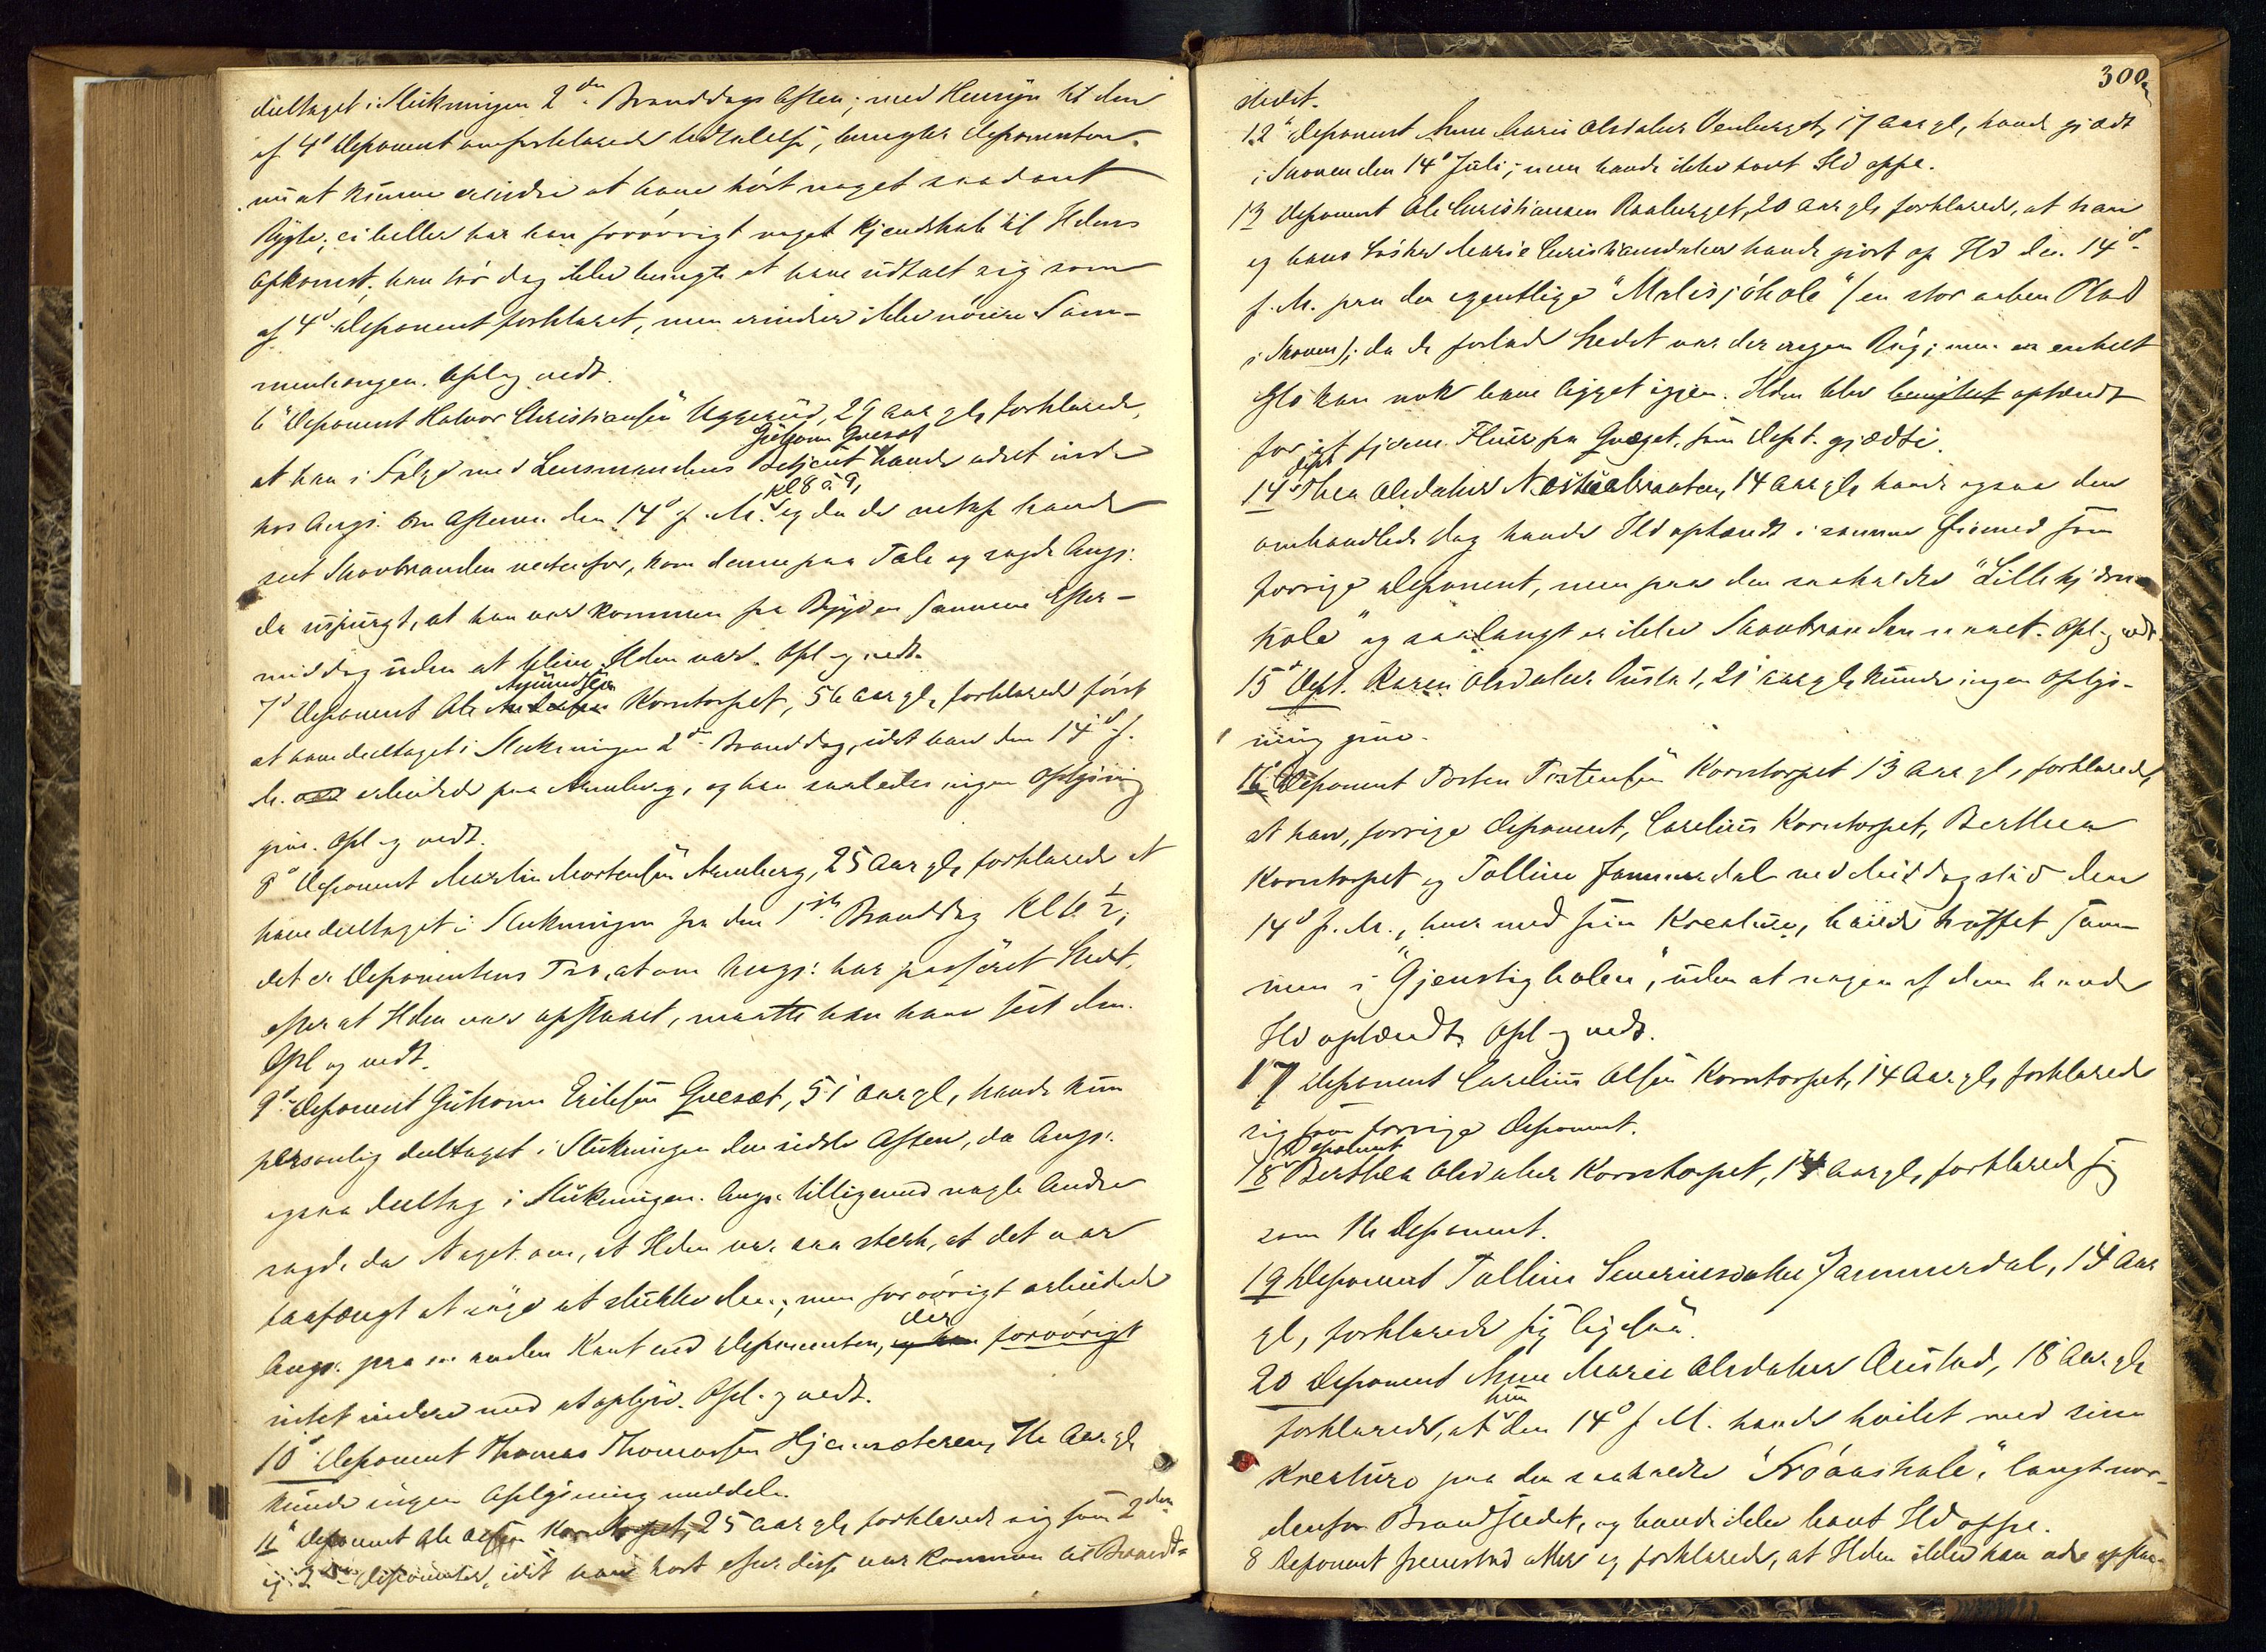 deeltaget i Slukningen 2den Branddags Aften; med Hensyn til den
af 4d Deponent omforklarede Udtalelse, benegter Deponenten
nu at kunne erindre at have hört noget saadant
Rygte; ei heller har han forövrigt noget Kjendskab til Ildens
Opkomst; han tör dog ikke benegte at have udtalt sig som
af 4d Deponent forklaret, men erindrer ikke nöiere Sam-
menhængen. Opl og vedt.
6d Deponent Halvor Christiansen Uggerud, 29 Aar gl, forklarede,
Guttorm Gvesæt
at han i Fölge med Lensmandens Betjent havde været inde
kl 8 à 9,
hos Angj. om Aftenen den 14d f. M. og da de netop havde
seet Skovbranden vestenfor, kom denne paa Tale og sagde Angj.
da uspurgt, at han var kommen fra Bygden samme Efter-
middag uden at blive Ilden var. Opl og vedt.
Amundsen
7d Deponent Ole Korntorpet, 56 Aar gl, forklarede först
at have deeltaget i Slukningen 2den Branddag, idet han den 14d f.
M. arbeidede paa Arneberg, og kan saaledes ingen Oplysning
give. Opl og vedt.
8d Deponent Martin Mortensen Arneberg, 25 Aar gl, forklarede at
have deeltaget i Slukningen fra den 1ste Branddag Kl 6 ½;
det er Deponentens Tro, at om Angj: har passeret Stedet,
efter at Ilden var opstaaet, maatte han have seet den.
Opl og vedt.
9d Deponent Guttorm Eriksen Gvesæt, 51 Aar gl, havde kun
personlig deeltaget i Slukningen den sidste Aften, da Angj.
ogsaa deeltog i Slukningen. Angj. tilligemed nogle Andre
sagde da Noget om, at Ilden var saa sterk, at det var
faafængt at söge at slukke den; men forövrigt arbeidede
der
Angj. paa en anden Kant end Deponenten, og han forövrigt
intet videre ved at oplyse. Opl. og vedt.
10d Deponent Thomas Thomassen Hjernsæteren, 76 Aar gl
kunde ingen Oplysning meddele.
11d Deponent Ole Olsen Korntorpet, 25 Aar gl, forklarede sig som 2den
og 3die Deponenter, idet han kort efter disse var kommen til Brand-
300
stedet.
12d Deponent Anne Marie Olsdatter Venberget, 17 Aar gl, havde gjædt
i Skoven den 14d Juli; men havde ikke havt Ild oppe.
13 Deponent Ole Christiansen Raaberget, 20 Aar gl, forklarede, at han
og hans Söster Marie Christiansdatter havde gjort op Ild den 14d
f. M. paa den egentlige "Malisjöhole" (en stor aaben Plads
i Skoven); da de forlod Stedet var der ingen Rög; men en enkelt
Glo kan nok have ligget igjen. Ilden blev benyttet optændt
for at fjerne Fluer fra Qvæget, som Dept. gjædte.
Dept
14d Thea Olsdatter Nesteebraaten, 14 Aar gl, havde ogsaa den
omhandlede Dag havde Ild optændt i samme Öiemed som
forrige Deponent, men paa den saakaldte "Lillekjern-
hole" og saalangt er ikke Skovbranden naaet. Opl. og vedt.
15d Dept. Karen Olsdatter Austad, 21 Aar gl, kunde ingen Oplys-
ning give.
16d Deponent Torsten Torstensen Korntorpet 13 Aar gl, forklarede,
at han, forrige Deponent, Carelius Korntorpet, Berthea
Korntorpet og Polline Jammerdal ved Middagstid den
14d f. M., hver med sine Kreature, havde truffet sam-
men i "Gjenstigholen", uden at nogen af dem havde
Ild optændt. Opl og vedt.
17 Deponent Carelius Olsen Korntorpet, 14 Aar gl, forklarede
sig som forrige Deponent.
Deponent
18 Berthea Olsdatter Korntorpet, 14 Aar gl, forklarede sig
som 16 Deponent.
19 Deponent Polline Severinsdatter Jammerdal, 14 Aar
gl, forklarede sig ligesaa.
20 Deponent Anne Marie Olsdatter Austad, 18 Aar gl,
hun
forklarede, at den 14d f. M. havde hvilet med sine
Kreature paa den saakaldte "Fröaashole", langt nor-
denfor Brandstedet, og havde ikke havt Ild oppe.
8 Deponent fremstod atter og forklarede, at Ilden ikke kan være opstaa-